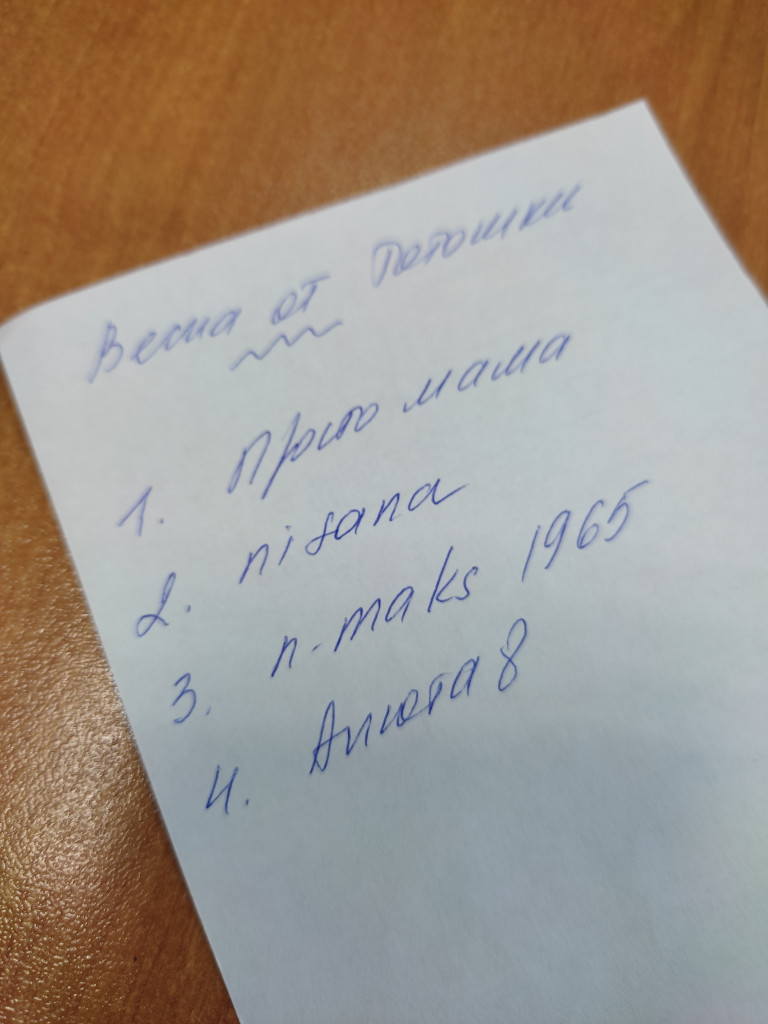 Весна от Тотошки
1. Просто мама
2. nisana
3. n-maks 1965
4. Анюта 8